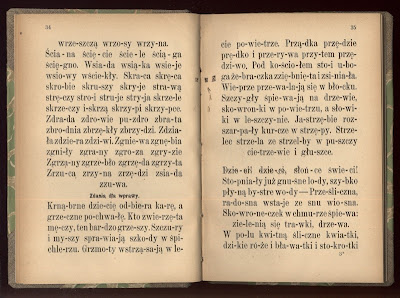 34
wrze-szczą wrzo-sy wrzy-na.
Ścia-na ście-cie ście-le ścią-ga
ścię-gno. Wsia-da wsią-ka wsie-je
wsio-wy wście-kły. Skra-ca skrę-ca
skro-bie skru-szy skry-je stra-wą
strę-czy stro-i stru-je stry-ja skrze-le
skrze-czy i-skrzą skrzy-pi skrzy-pce.
Zdra-da zdro-wie pu-zdro zbra-ta
zbro-dnia zbrzę-kły zbrzy-dzi. Zdzia-
ła zdzie-ra zdzi-wi. Zgnie-wa zgnę-bia
zgni-ły zgra-ny zgro-za zgry-zie
Zgrzą-ny zgrze-bło zgrzę-da zgrzy-ta
Zrzu-cą zrzy-na zrzę-dzi zsia-da
zzu-wa.
Zdania, dla wprawy.
Krną-brne dzie-cię od-bie-ra ka-rę, a
grze-czne po-chwa-łę. Kto zwie-rzę-ta
mę-czy, ten bar-dzo grze-szy. Szczu-ry
i my-szy spra-wia-ją szko-dy w śpi-
chle-rzu. Grzmo-ty wstrzą-sa-ją w le-
35
cie po-wie-trze. Prząd-ka przę-dzie
prę-dko i prze-ry-wa przy-tem przę-
dzi-wo. Pod ko-ścio-łem sto-i u-bo-
ga że-bra-czka zzię-bnię-ta i zsi-nia-ła.
Wie-prze prze-wa-la-ją się w bło-cku.
Szczy-gły śpie-wa-ją na drze-wie,
sko-wron-ki w po-wie-trzu, a sło-wi-
ki w le-szczy-nie. Ja-strzę-bie roz-
szar-pa-ły kur-cze w strzę-py. Strze-
lec strze-la ze strzel-by w pu-szczy
cie-trze-wie i głu-szce.
Dzie-ń dzie-ń, słoń-ce świe-ci!
Sto-pnia-ły już gnu-śne lo-dy, szyb-ko
pły-ną by-stre wo-dy — Prze-śli-czna,
ra-do-sna wsta-je ze snu wio-sna.
Sko-wro-ne-czek w chmu-rze śpie-wa:
zie-le-nią się tra-wki, drze-wa.
W po-lu kwi-tną śli-czne kwia-tki,
dzi-kie ró-że i bła-wa-tki i sto-kro-tki
3*